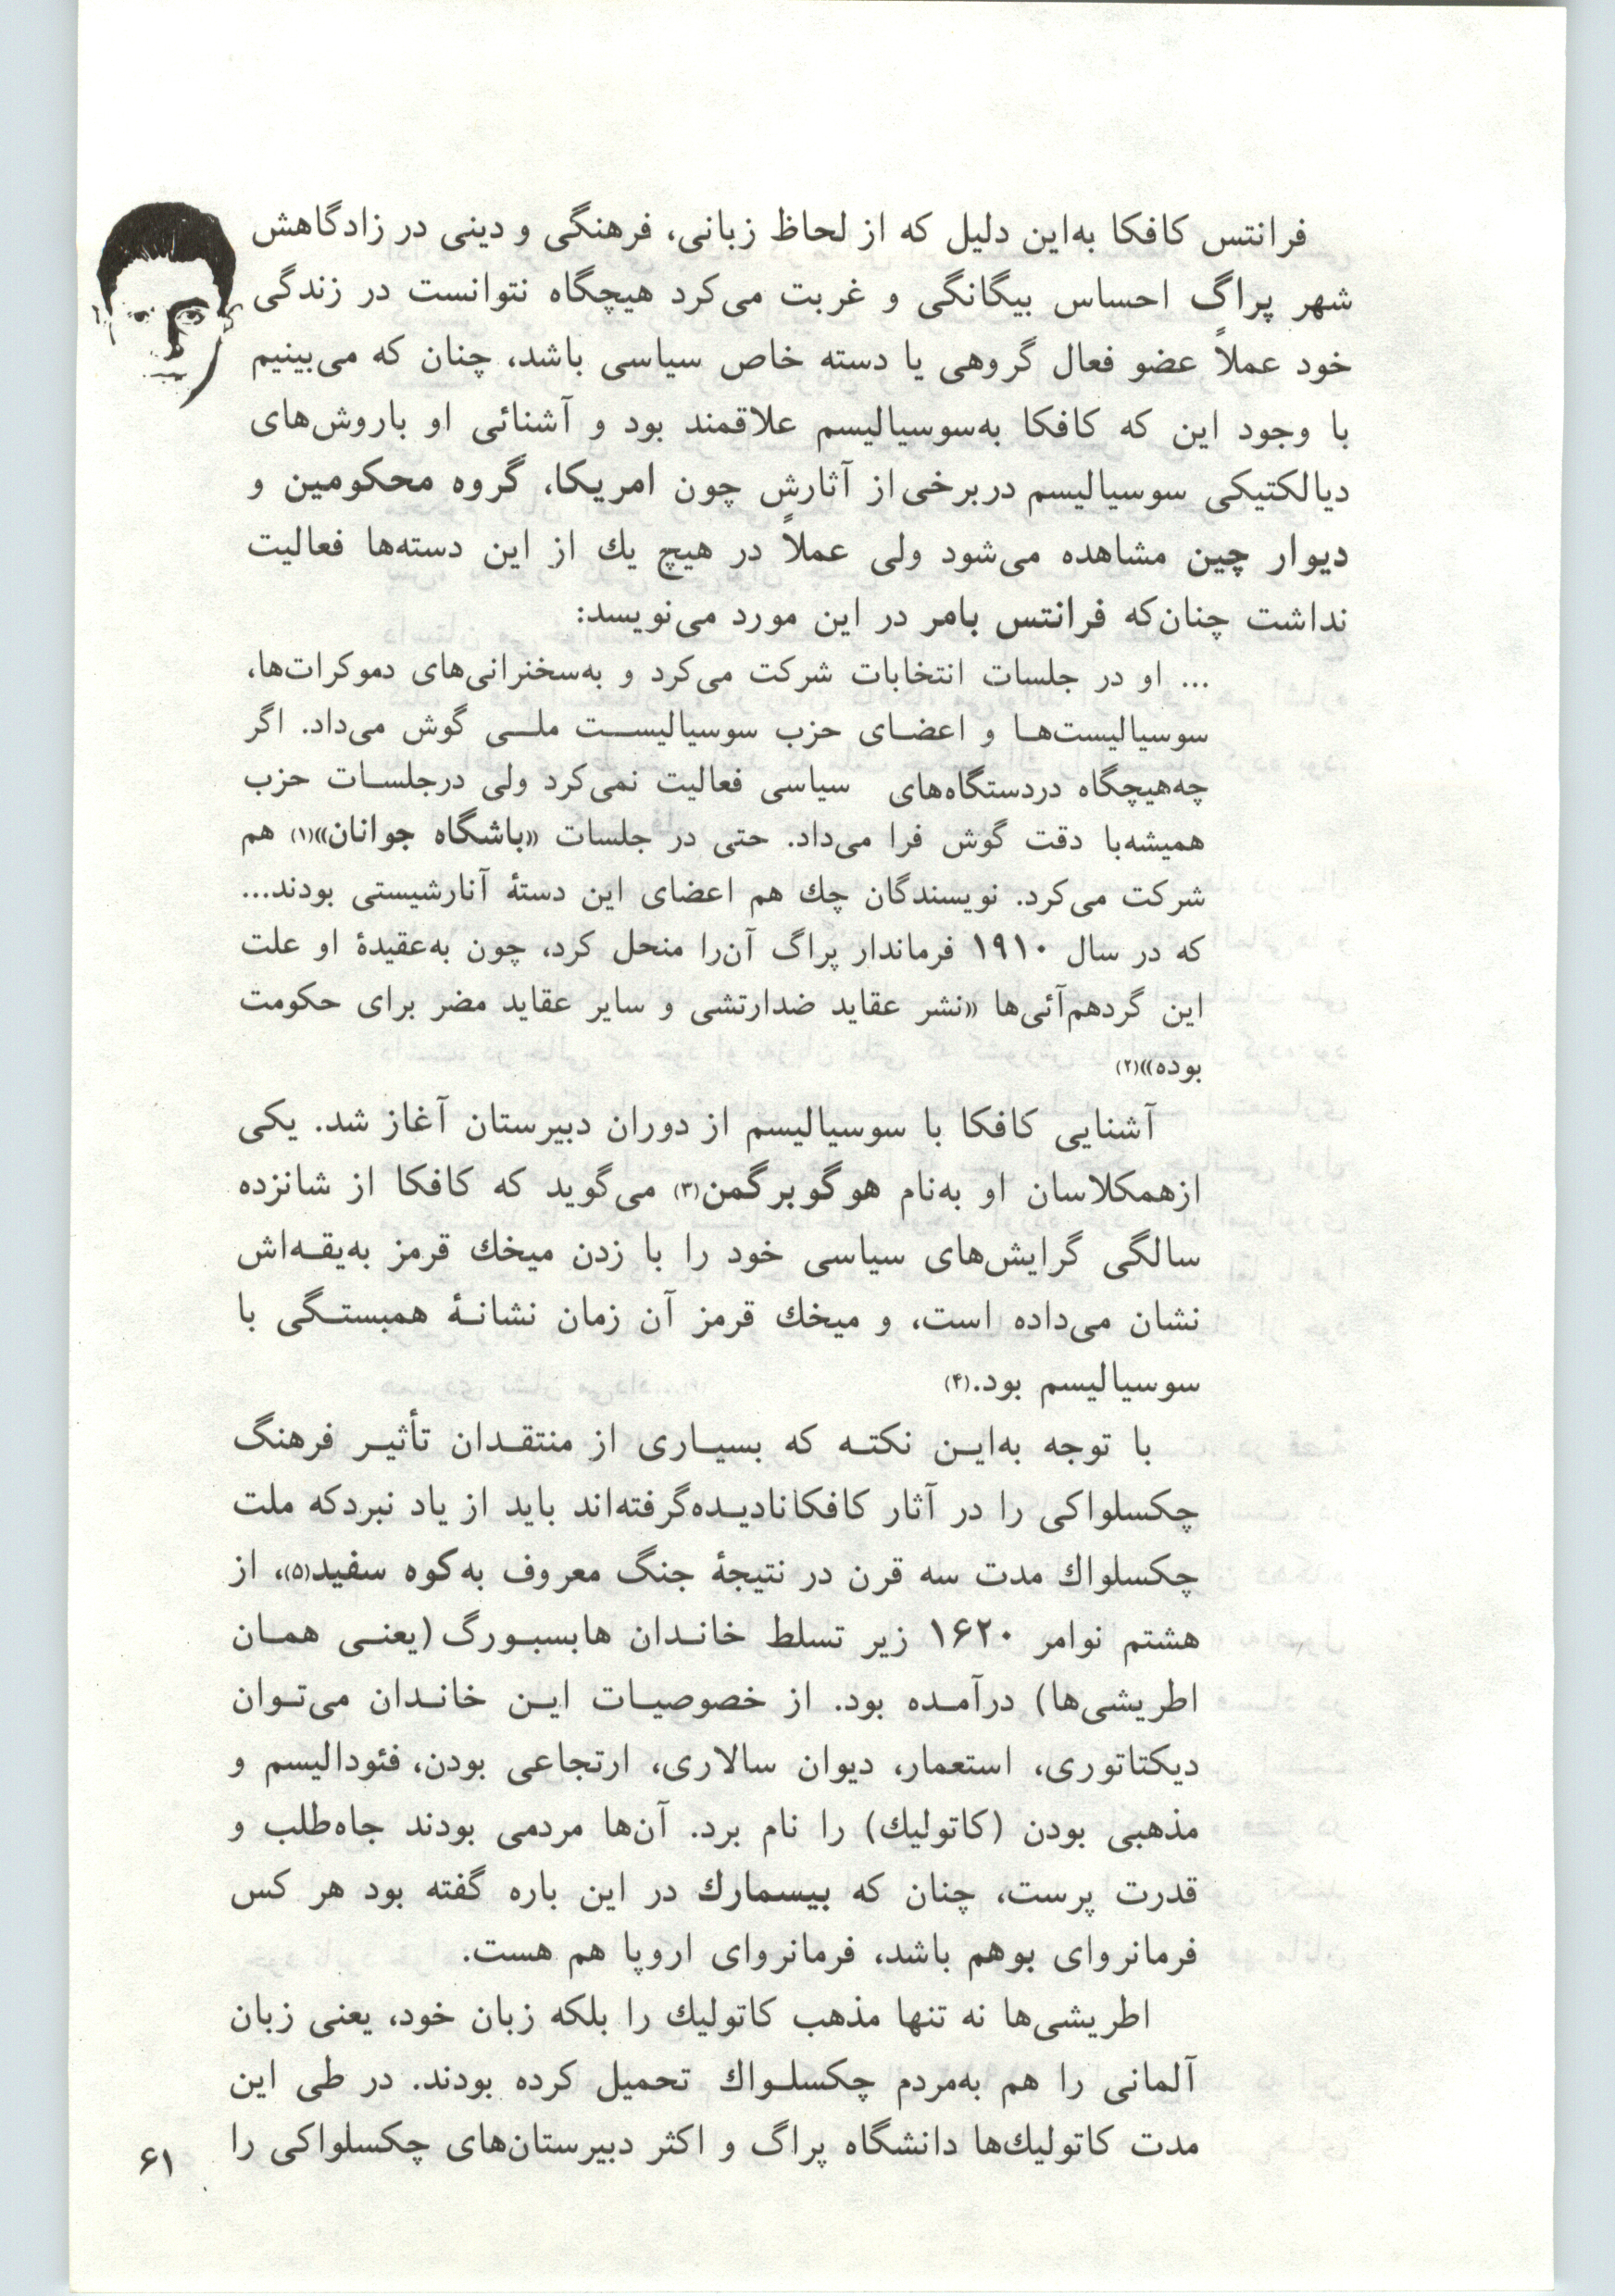 فرانتس کافکا به‌این دلیل که از لحاظ زبانی، فرهنگی و دینی در زادگاهش
شهر پراگ احساس بیگانگی و غربت می‌کرد هیچگاه نتوانست در زندگی
خود عملاً عضو فعال گروهی یا دسته خاص سیاسی باشد، چنان که می‌بینیم
با وجود این که کافکا به‌سوسیالیسم علاقمند بود و آشنائی او باروش‌های
دیالکتیکی سوسیالیسم دربرخی از آثارش چون امریکا، گروه محکومین و
دیوار چین مشاهده می‌شود ولی عملاً در هیچ یك از این دسته‌ها فعالیت
نداشت چنان‌که فرانتس بامر در این مورد می‌نویسد:
... او در جلسات انتخابات شرکت می‌کرد و به‌سخنرانی‌های دموکرات‌ها،
سوسیالیست‌هـا و اعضـای حزب سوسیالیسـت ملـی گوش می‌داد. اگر
چه‌هیچگاه دردستگاه‌های سیاسی فعالیت نمی‌کرد ولی درجلسـات حزب
همیشه‌با دقت گوش فرا می‌داد. حتی در جلسات «باشگاه جوانان»(۱) هم
شرکت می‌کرد. نویسندگان چك هم اعضای این دستهٔ آنارشیستی بودند...
که در سال ۱۹۱۰ فرماندار پراگ آن‌را منحل کرد، چون به‌عقیدهٔ او علت
این گردهم‌آئی‌ها «نشر عقاید ضدارتشی و سایر عقاید مضر برای حکومت
بوده»(۲)
آشنایی کافکا با سوسیالیسم از دوران دبیرستان آغاز شد. یکی
ازهمکلاسان او به‌نام هوگوبرگمن(۳) می‌گوید که کافکا از شانزده
سالگی گرایش‌های سیاسی خود را با زدن میخك قرمز به‌یقـه‌اش
نشان می‌داده است، و میخك قرمز آن زمان نشانـهٔ همبستـگی با
سوسیالیسم بود.(۴)
با توجه به‌ایـن نکتـه که بسیـاری از منتقـدان تأثیـر فرهنگ
چکسلواکی را در آثار کافکانادیـده‌گرفته‌اند باید از یاد نبردکه ملت
چکسلواك مدت سه قرن در نتیجهٔ جنگ معروف به‌کوه سفید(۵)، از
هشتم نوامر ۱۶۲۰ زیر تسلط خانـدان هابسبـورگ (یعنـی همـان
اطریشی‌ها) درآمـده بود. از خصوصیـات ایـن خانـدان می‌تـوان
دیکتاتوری، استعمار، دیوان سالاری، ارتجاعی بودن، فئودالیسم و
مذهبی بودن (کاتولیك) را نام برد. آن‌ها مردمی بودند جاه‌طلب و
قدرت پرست، چنان که بیسمارك در این باره گفته بود هر کس
فرمانروای بوهم باشد، فرمانروای اروپا هم هست.
اطریشی‌ها نه تنها مذهب کاتولیك را بلکه زبان خود، یعنی زبان
آلمانی را هم به‌مردم چکسلـواك تحمیل کرده بودند. در طی این
مدت کاتولیك‌ها دانشگاه پراگ و اکثر دبیرستان‌های چکسلواکی را
۶۱